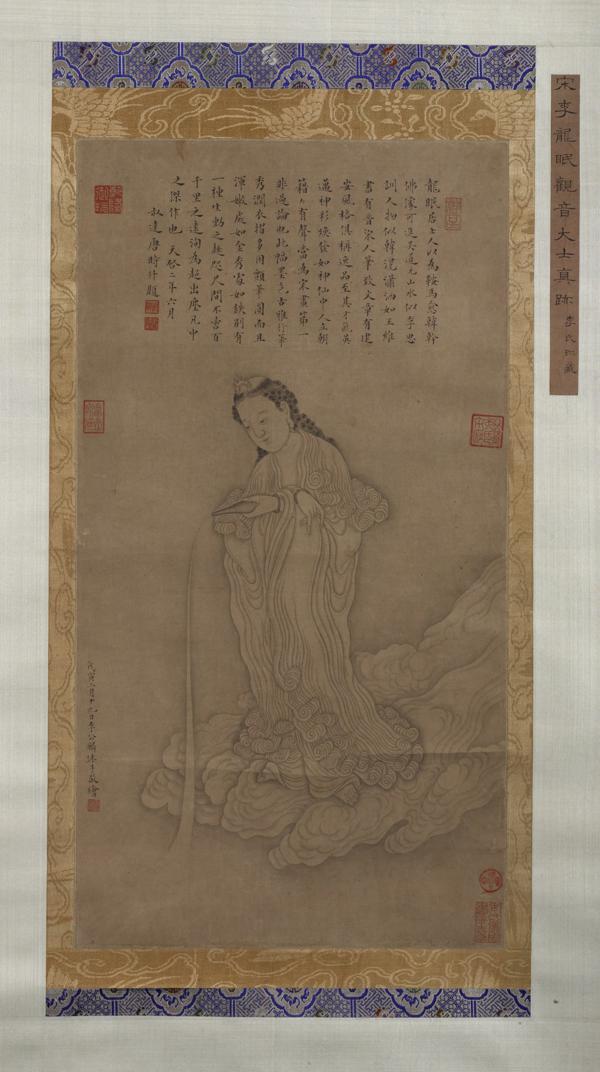 宋李龍眠觀音大士真跡 李氏珍藏
龍眠居士人以為鞍馬愈韓幹
佛像可追吳道元山水似李思
訓人物似韓滉瀟洒如王維
書有晉宋人筆致文章有建
安風格俱稱逸品至其才氣英
邁神彩煥發如神仙中人立朝
籍々有聲當為宋畫第一
非過論也此幅墨色古雅行筆
秀潤衣摺多用顫筆圓而且
渾嫩處如金秀處如鐵別有
一種生動之趣咫尺間不啻百
千里之遠洵為超出塵凡中
之傑作也 天啓二年六月
叔達唐時升題
戊寅二月十九日李公麟沐手敬繪